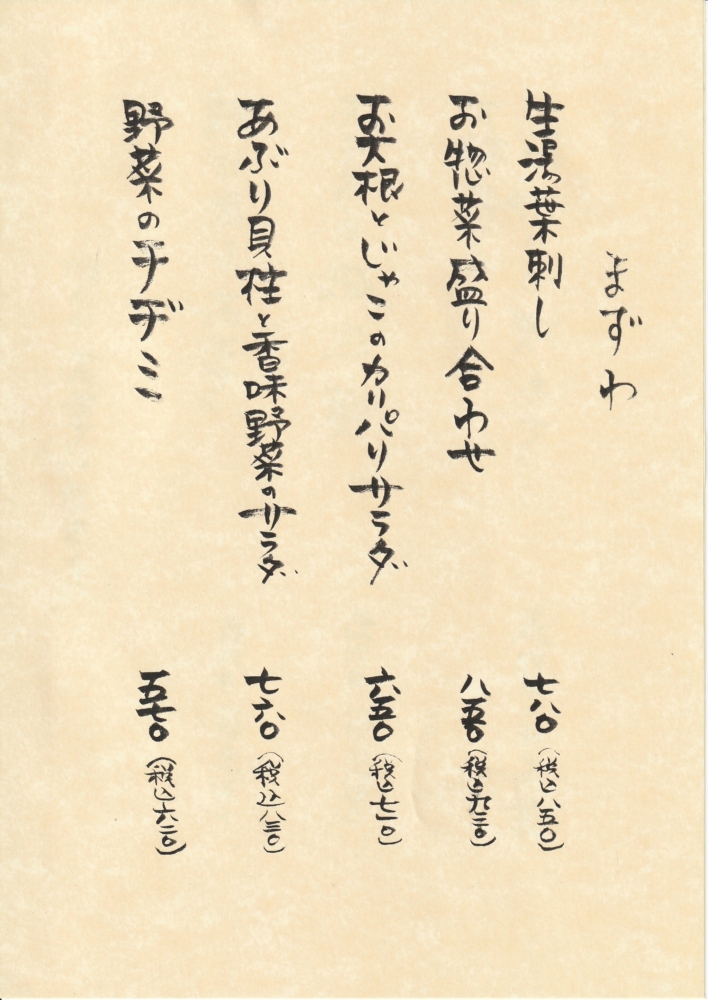 まずわ
生湯葉刺し 七八〇(税込八五〇)
お惣菜盛り合わせ 八五〇(税込九三〇)
お大根とじゃこのカリパリサラダ 六五〇(税込七一〇)
あぶり貝柱と香味野菜のサラダ 七六〇(税込八三〇)
野菜のチヂミ 五七〇(税込六二〇)